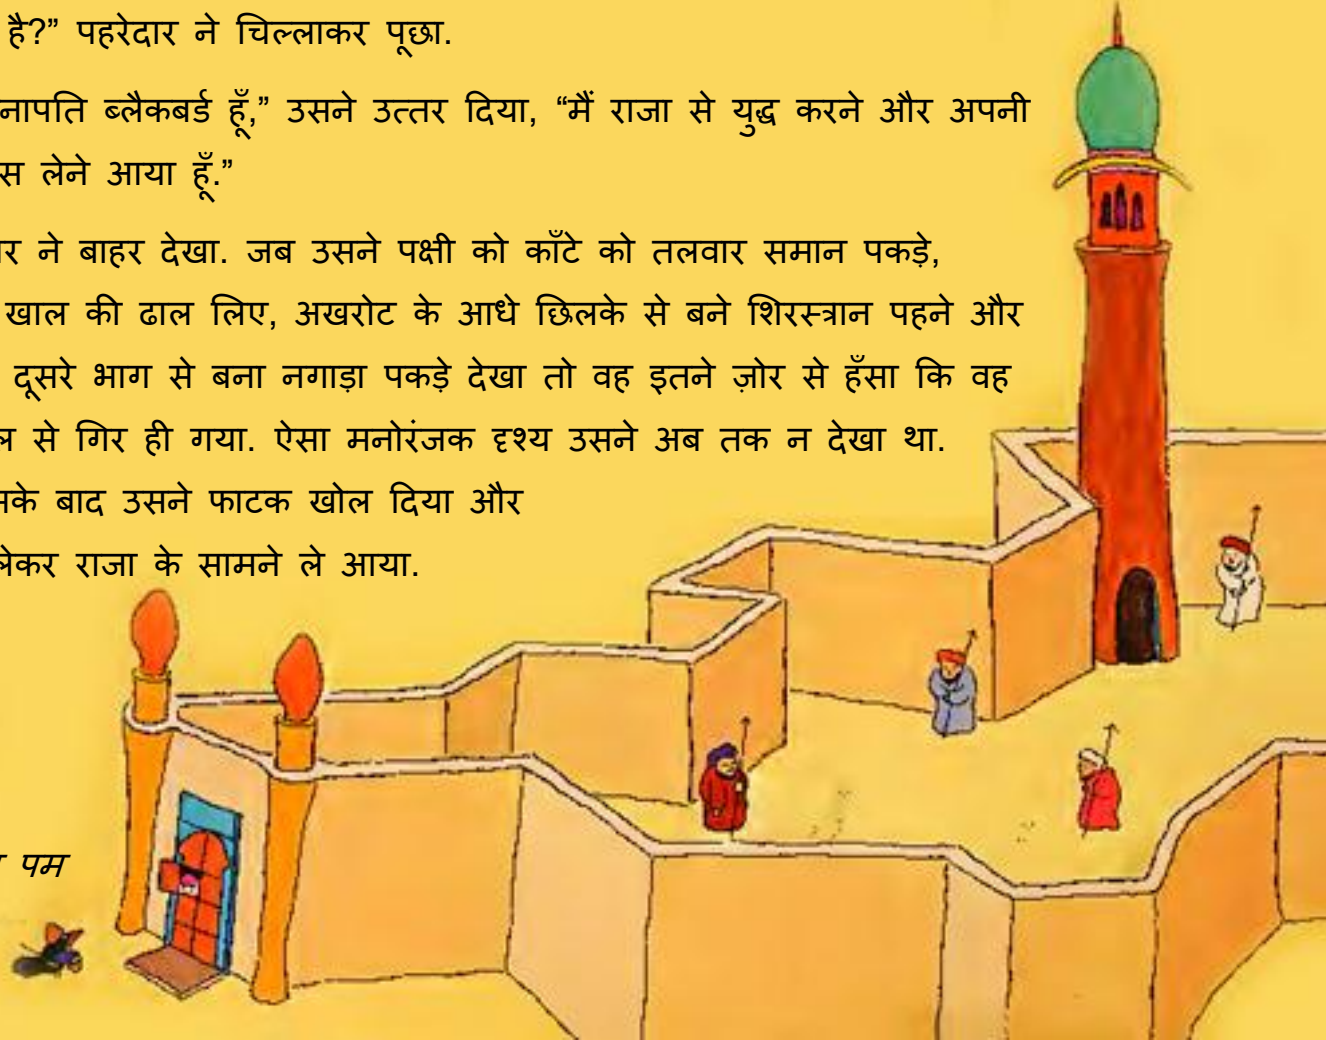 है?” पहरेदार ने चिल्लाकर पूछा.
नापति ब्लैकबर्ड हूँ,” उसने उत्तर दिया, “मैं राजा से युद्ध करने और अपनी
स लेने आया हूँ.”
र ने बाहर देखा. जब उसने पक्षी को काँटे को तलवार समान पकड़े,
खाल की ढाल लिए, अखरोट के आधे छिलके से बने शिरस्त्रान पहने और
दूसरे भाग से बना नगाड़ा पकड़े देखा तो वह इतने ज़ोर से हँसा कि वह
ल से गिर ही गया. ऐसा मनोरंजक दृश्य उसने अब तक न देखा था.
के बाद उसने फाटक खोल दिया और
लेकर राजा के सामने ले आया.
पम